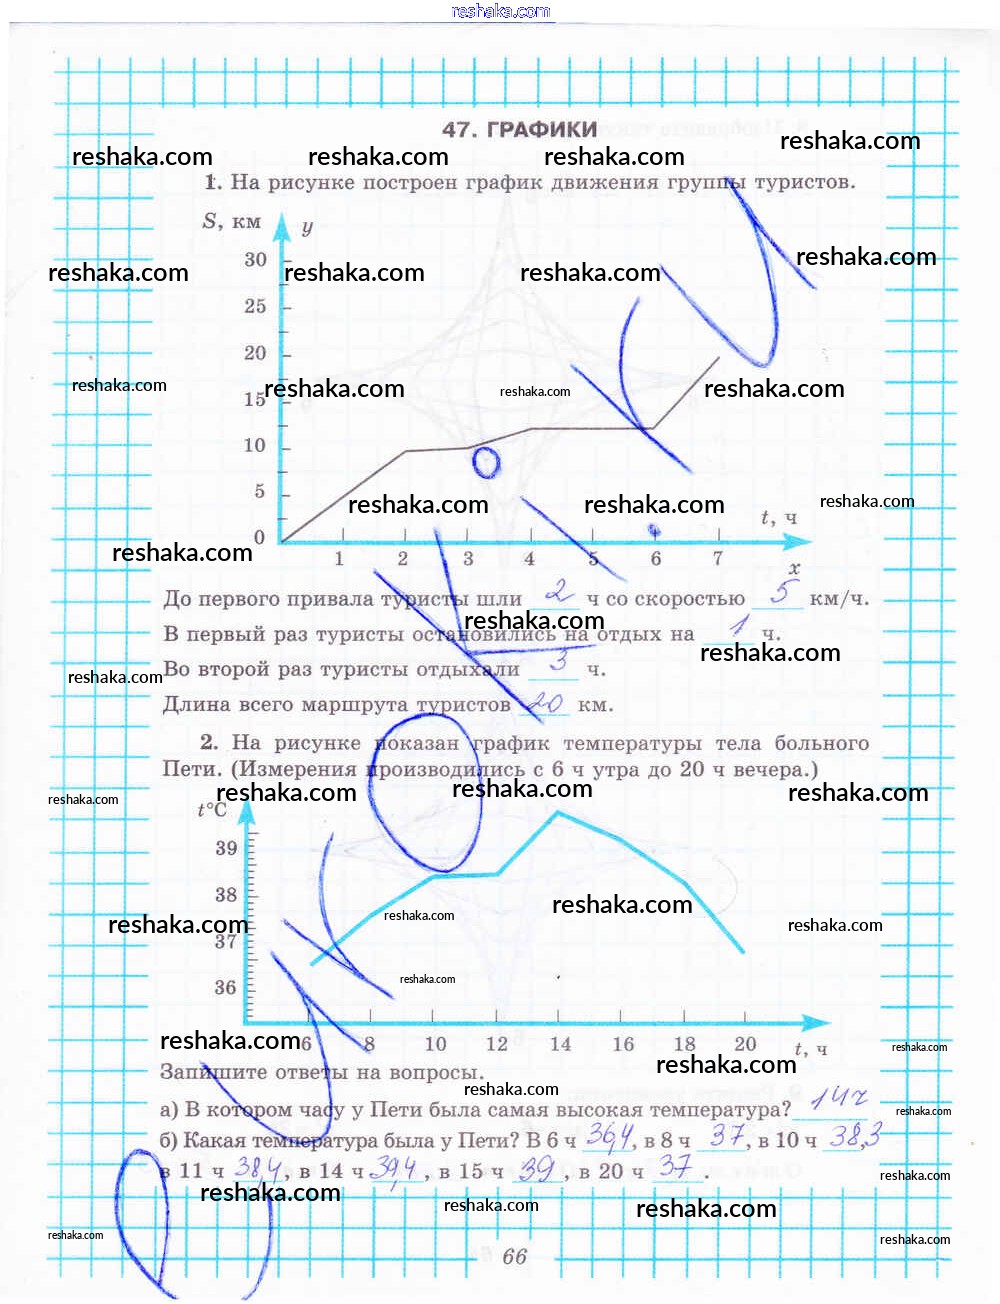 reshaka.com
47. ГРАФИКИ
reshaka.com reshaka.com reshaka.com reshaka.com
1. На рисунке построен график движения группы туристов.
S, км y
30
reshaka.com reshaka.com reshaka.com reshaka.com
25
20
reshaka.com reshaka.com reshaka.com reshaka.com
15
10
5
reshaka.com reshaka.com reshaka.com
t, ч
0
reshaka.com
1 2 3 4 5 6 7
x
До первого привала туристы шли 2 ч со скоростью 5 км/ч.
reshaka.com
В первый раз туристы остановились на отдых на 1 ч.
reshaka.com
Во второй раз туристы отдыхали 3 ч.
reshaka.com
Длина всего маршрута туристов 20 км.
2. На рисунке показан график температуры тела больного
Пети. (Измерения производились с 6 ч утра до 20 ч вечера.)
reshaka.com reshaka.com reshaka.com reshaka.com
t°C
39
38
reshaka.com reshaka.com reshaka.com reshaka.com reshaka.com
37
reshaka.com
36
6 8 10 12 14 16 18 20 t, ч
reshaka.com reshaka.com reshaka.com
Запишите ответы на вопросы.
reshaka.com
а) В котором часу у Пети была самая высокая температура? 14ч
reshaka.com
б) Какая температура была у Пети? В 6 ч 36,4, в 8 ч 37, в 10 ч 38,3
в 11 ч 38,4, в 14 ч 39,4, в 15 ч 39, в 20 ч 37.
reshaka.com reshaka.com reshaka.com reshaka.com
reshaka.com reshaka.com
66